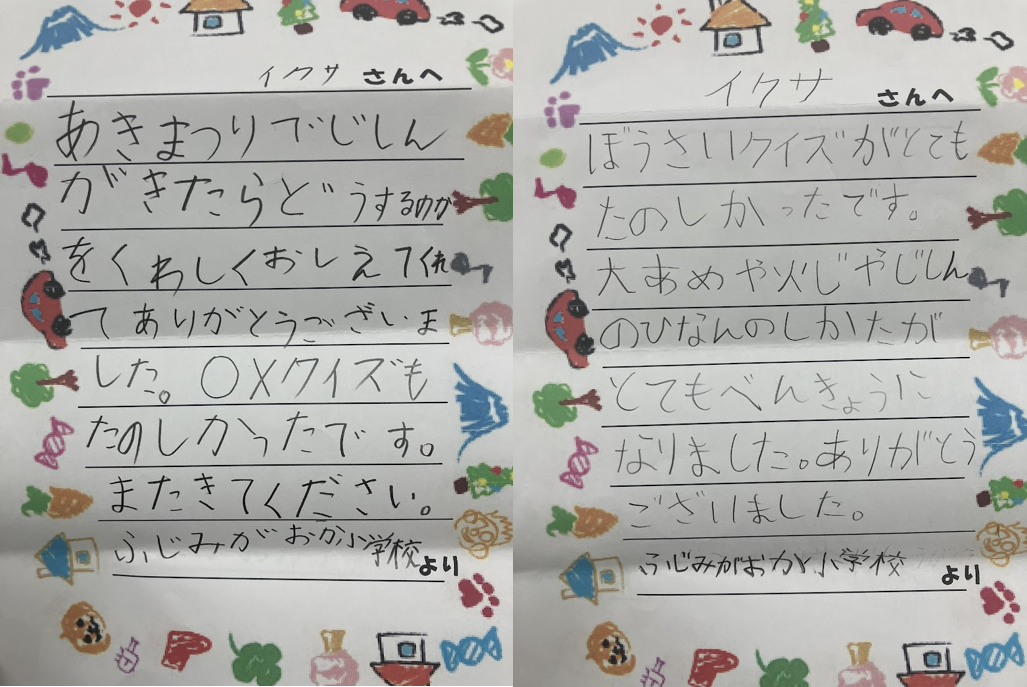 イクサ さんへ
あきまつりでじしん
がきたらどうするのか
をくわしくおしえてくれ
てありがとうございま
した。〇×クイズも
たのしかったです。
またきてください。
ふじみがおか小学校より
イクサ さんへ
ぼうさいクイズがとても
たのしかったです。
大あめや火じやじしん
のひなんのしかたが
とてもべんきょうに
なりました。ありがとう
ございました。
ふじみがおか小学校 より